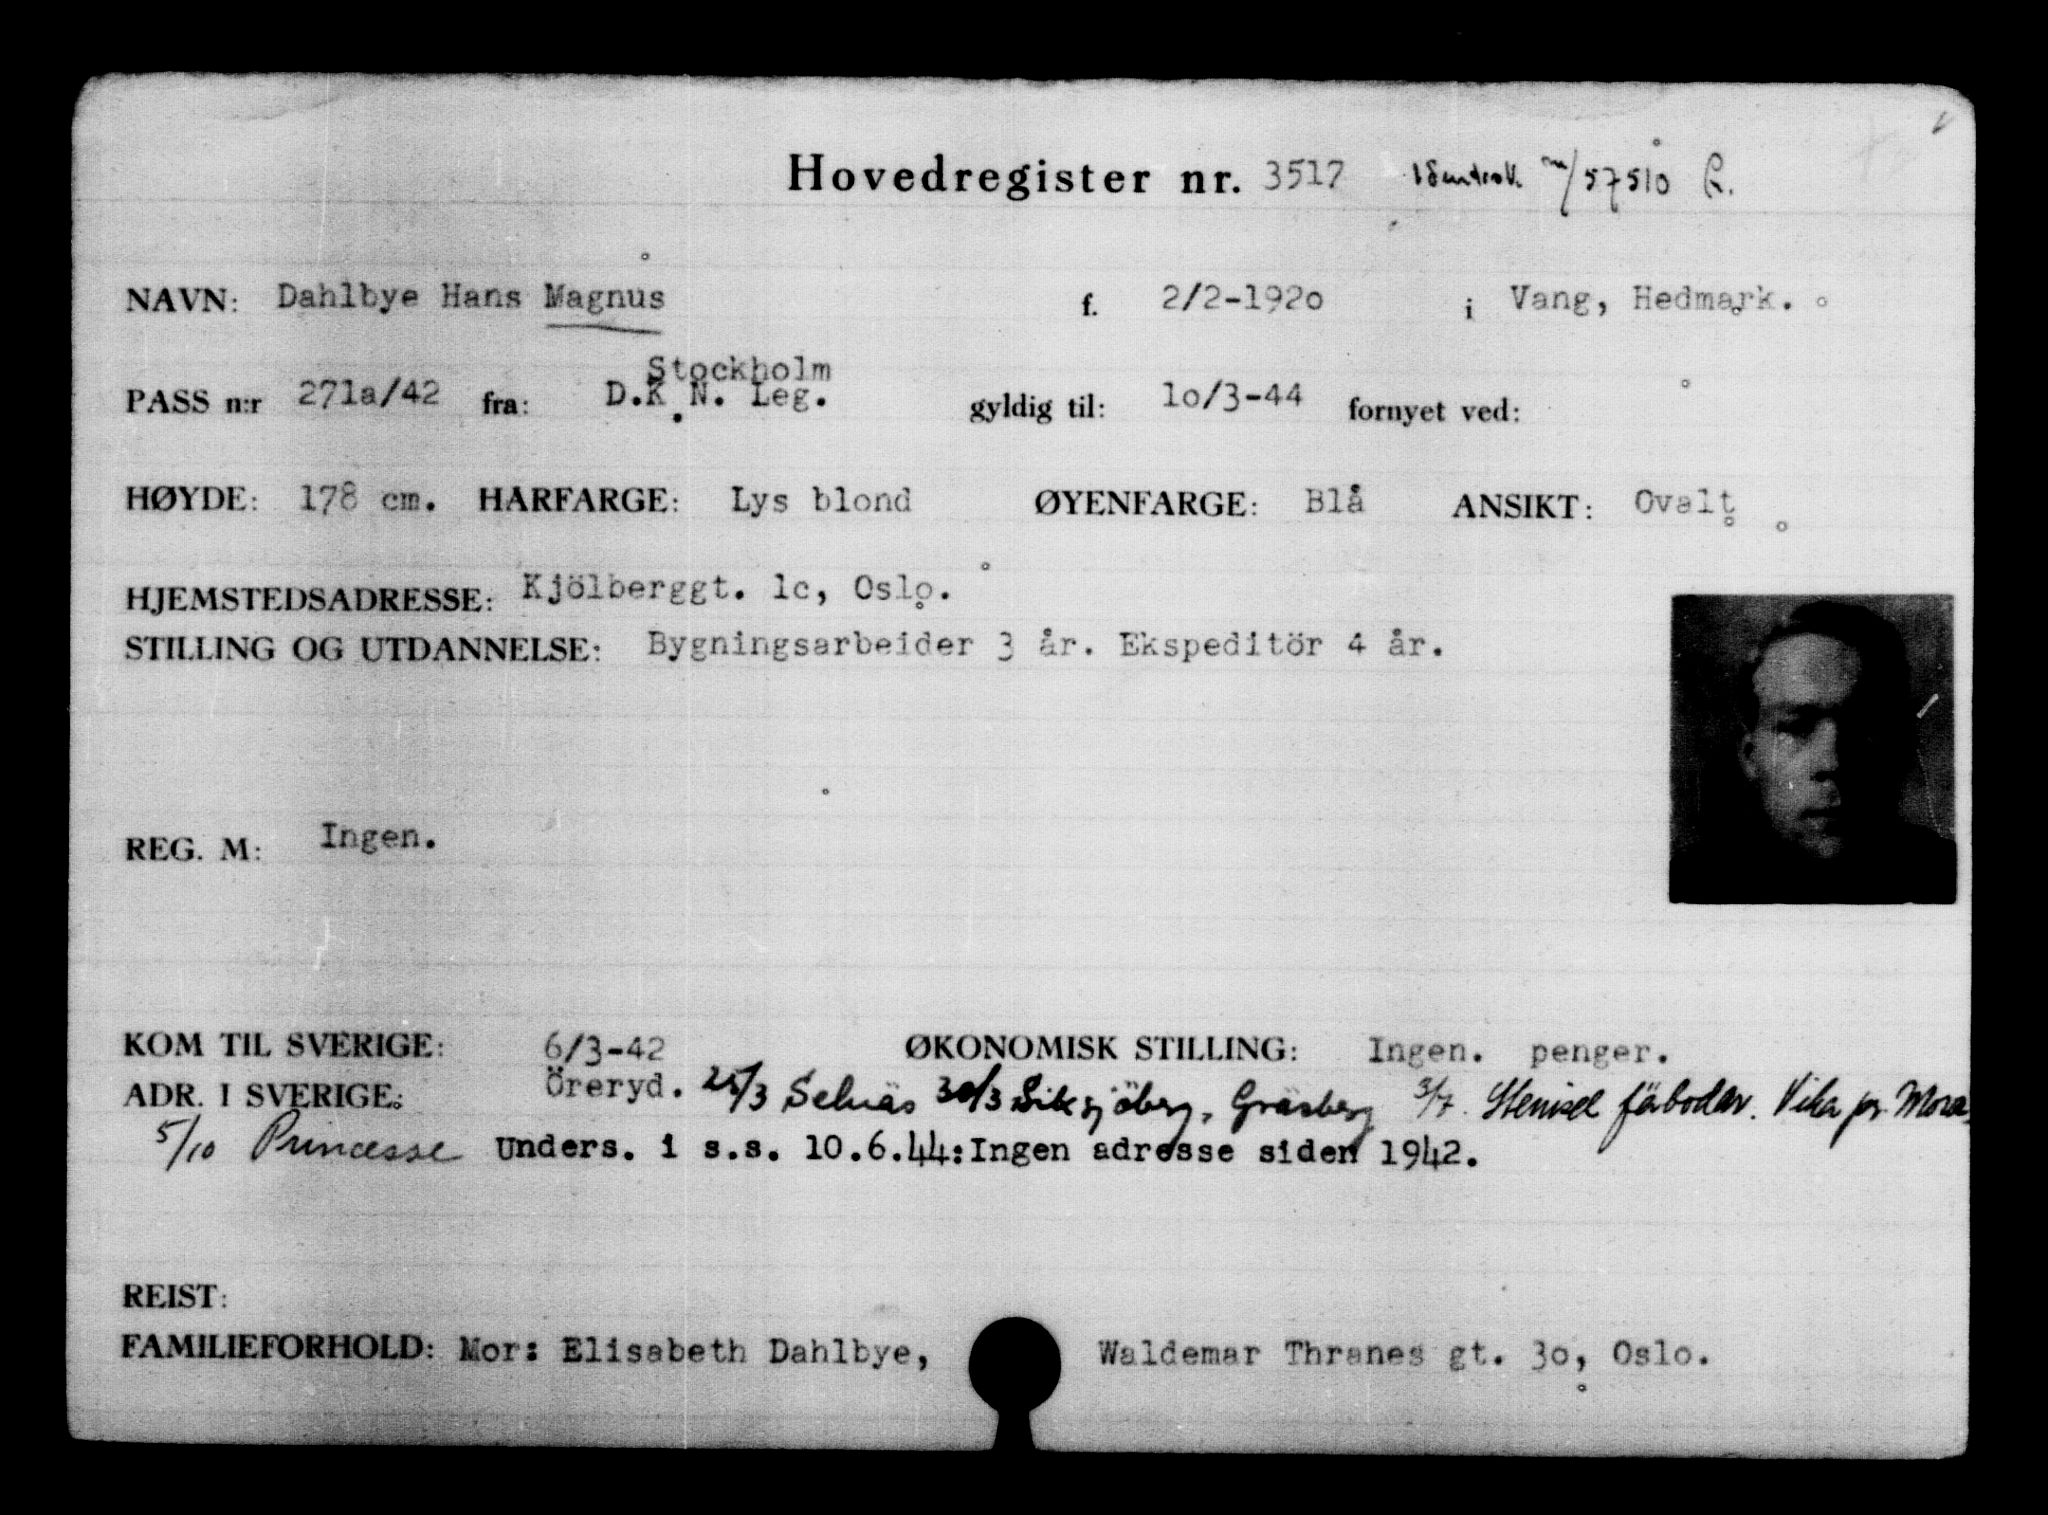 Hovedregister nr. 3517 57510
NAVN: Dahlbye Hans Magnus f. 2/2-1920 i Vang, Hedmark.
Stockholm
PASS n:r 271a/42 fra: D.K.N. Leg. gyldig til: 10/3-44 fornyet ved:
HØYDE: 178 cm. HÅRFARGE: Lys blond ØYENFARGE: Blå ANSIKT: Ovalt
HJEMSTEDSADRESSE: Kjölberggt. 1c, Oslo.
STILLING OG UTDANNELSE: Bygningsarbeider 3 år. Ekspeditör 4 år.
REG. M: Ingen.
KOM TIL SVERIGE: 6/3-42 ØKONOMISK STILLING: Ingen. penger.
ADR. I SVERIGE: Öreryd. 25/3 Selnäs 30/3 Siksjöberg, Gräsberg 3/7. fäbodar. Vika pr. Mora.
5/10 Princesse Unders. i s.s. 10.6.44: Ingen adresse siden 1942.
REIST:
FAMILIEFORHOLD: Mor: Elisabeth Dahlbye, Waldemar Thranes gt. 30, Oslo.